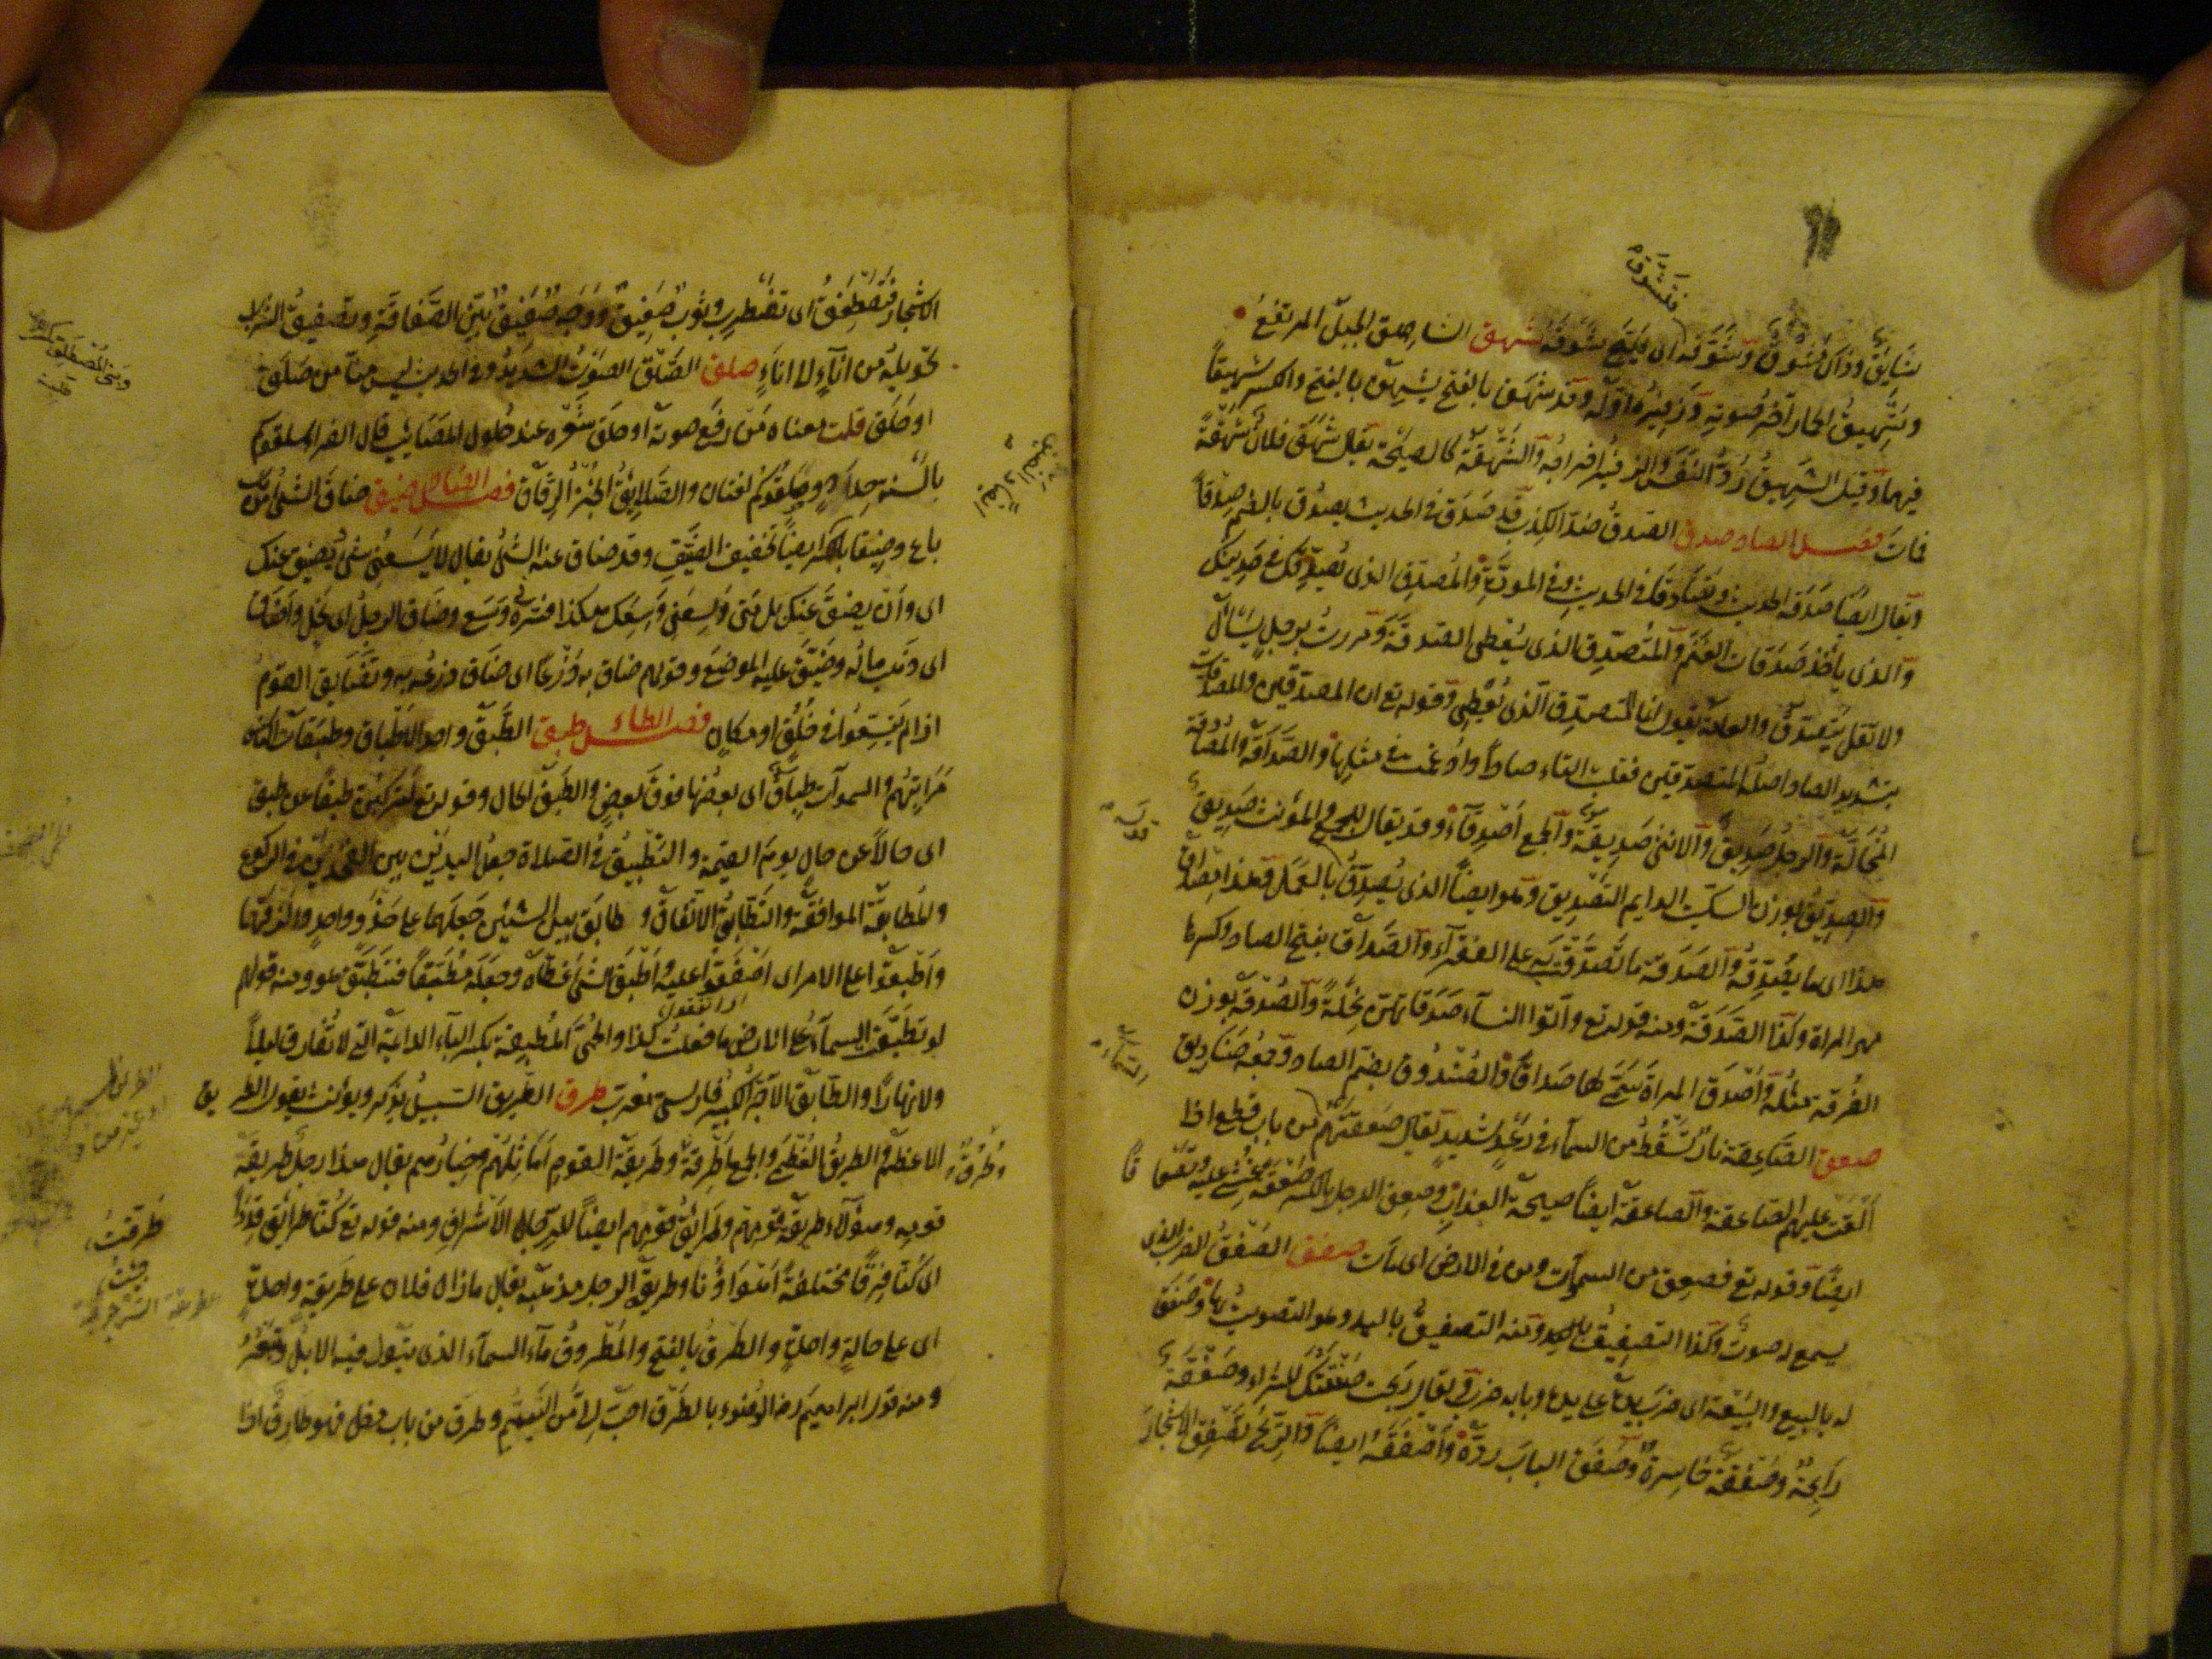 فتشوق
شايق وذاك مشوق وشوقه اى هيج شوقه شهق الشاهق الجبل المرتفع
وشهيق الحمار آخر صوته وزفيره اوله وقد شهق بالفتح يشهق بالفتح والكسر شهيقا
فيهما وقيل الشهيق رد النفس والزفير اخراجه والشهقة كالصيحة يقال شهق فلان شهقة
فمات فصل الصاد صدق الصدق ضد الكذب قد صدق فى الحديث يصدق بالضم صدقا
ويقال ايضا صدقه الحديث وتصادقا فى الحديث وفى المودة والمصدق الذى يصدقك فى حديثك
والذى ياخذ صدقات الغنم والمتصدق الذى يعطى الصدقة ومررت برجل يسأل
ولا تقل يتصدق والعامة تقول انما المتصدق الذى يعطى وقوله تع ان المصدقين والمصدقات
بتشديد الصاد اصله المتصدقين فقلبت التاء صادا وادغمت فى مثلها والصداقة والمصادقة
المخالة والرجل صديق والانثى صديقة والجمع اصدقاء وقد يقال للجمع والمؤنث صديق
والصديق بوزن السكيت الدايم التصديق وهو ايضا الذى يصدق بالعمل وهذا مصداق
هذا اى ما يصدقه والصدقة ما تصدقت به على الفقراء والصداق بفتح الصاد وكسرها
مهر المراة وكذا الصدقة ومنه قوله تع وآتوا النساء صدقاتهن نحلة والصدقة بوزن
الغرفة مثله واصدق المراة سمى لها صداقا والصندوق بضم الصاد وجمعه صناديق
صعق الصاعقة نار تسقط من السماء فى رعد شديد يقال صعقتهم من باب قطع اذا
القت عليهم الصاعقة والصاعقة ايضا صيحة العذاب وصعق الرجل بالكسر صعقة غشى عليه وتصعاقا
ايضا وقوله تع فصعق من السموات ومن فى الارض اى مات صفق الصفق الضرب الذى
يسمع له صوت وكذا التصفيق ومنه التصفيق باليد وهو التصويت بها وصفق
له بالبيع والبيعة اى ضرب يده على يده وبابه ضرب يقال ربحت صفقتك للشراء وصفقة
رابحة وصفقة خاسرة وصفق الباب رده واصفقه ايضا والريح تصفق الاشجار
الاشجار فتصطفق اى تضطرب وثوب صفيق ووجه صفيق بين الصفاقة وتصفيق الشراب
تحويله من اناء الى اناء صلق الصلق الصوت الشديد وفى الحديث ليس منا من صلق
او حلق قلت معناه من رفع صوته او حلق شعره عند حلول المصائب قال الفراء سلقوكم
بالسنة حداد وصلقوكم لغتان والصلايق الخبز الرقاق فصل الضاد ضيق ضاق الشئ من
باع وضيقا بالكسر ايضا تخفيف الضيق وقد ضاق عنه الشئ يقال لا يسعنى شئ ويضيق عنك
اى وان يضيق عنك بل متى وسعنى وسعك هكذا فسره فى وسع وضاق الرجل اى بخل واضاق
اى ذهب ماله وضيق عليه الموضع وقولهم ضاق به ذرعا اى ضاق ذرعه به وتضايق القوم
اذا لم يتسعوا فى خلق او مكان فصل الطاء طبق الطبق واحد الاطباق وطبقات الناس
مراتبهم والسموات طباق اى بعضها فوق بعض والطبق الحال وقوله تع لتركبن طبقا عن طبق
اى حالا عن حال يوم القيمة والتطبيق فى الصلاة جعل اليدين بين الفخذين فى الركوع
والمطابقة الموافقة والتطابق الاتفاق وطابق بين الشيئين جعلهما على حذو واحد والزقهما
واطبقوا على الامر اى اصفقوا عليه واطبق الشئ غطاه وجعله مطبقا فتطبق هو ومنه قولهم
لو تطبقت السماء على الارض ما فعلت كذا والحمى المطبقة بكسر الباء الدايمة التى لا تفارق ليلا
ولا نهارا والطابق الآجر الكبير فارسى معرب طرق الطريق السبيل يذكر ويؤنث يقول الطريق
الاعظم والطريق العظمى والجمع اطرقة وطرق وطريقة القوم اماثلهم وخيارهم يقال هذا رجل طريقة
قومه وهؤلاء طريقة قومهم وطرائق قومهم ايضا للرجال الاشراف ومنه قوله تع كنا طرائق قددا
اى كنا فرقا مختلفة اهواؤنا وطريقة الرجل مذهبه يقال ما زال فلان على طريقة واحدة
اى على حالة واحدة والطرق بالفتح والمطروق ماء السماء الذى تبول فيه الابل وتبعر
ومنه قول ابراهيم رضه الوضوء بالطرق احب الى من التيمم وطرق من باب دخل فهو طارق اذا